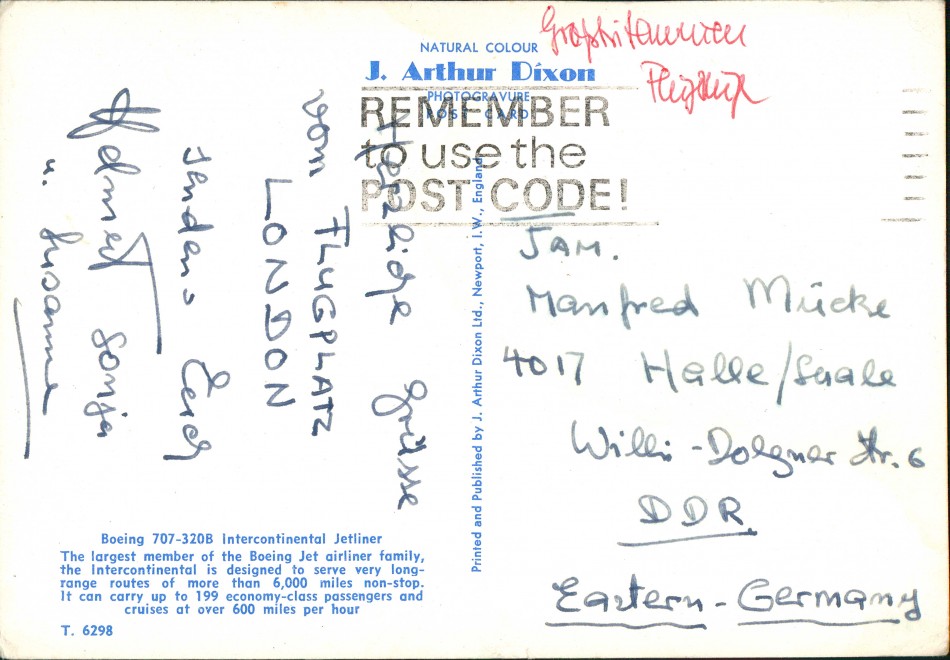 Großbritannien
Flugzeuge
NATURAL COLOUR
J. Arthur Dixon
PHOTOGRAVURE
POST CARD
REMEMBER
to use the
POST CODE!
Herzliche Grüsse
vom FLUGPLATZ
LONDON
senden Euch
Helmut Sonja
u. Susanne
Printed and Published by J. Arthur Dixon Ltd., Newport, I.W., England
FAM.
Manfred Mücke
4017 Halle/Saale
Willi-Dolgner Str. 6
DDR
Eastern-Germany
Boeing 707-320B Intercontinental Jetliner
The largest member of the Boeing Jet airliner family,
the Intercontinental is designed to serve very long-
range routes of more than 6,000 miles non-stop.
It can carry up to 199 economy-class passengers and
cruises at over 600 miles per hour
T. 6298